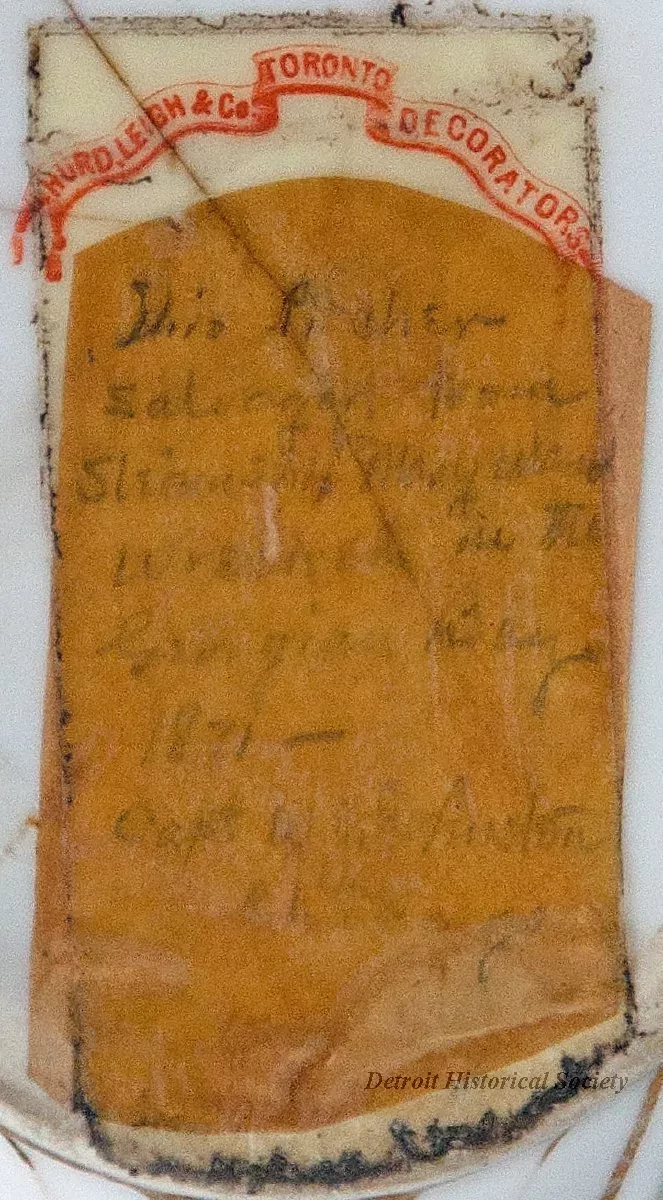 HURD, LEIGH & Co. TORONTO DECORATORS
This Pitcher
Salvaged from
Steamship
Wrecked in the
Georgian Bay
187 —
Capt Austin
Detroit Historical Society